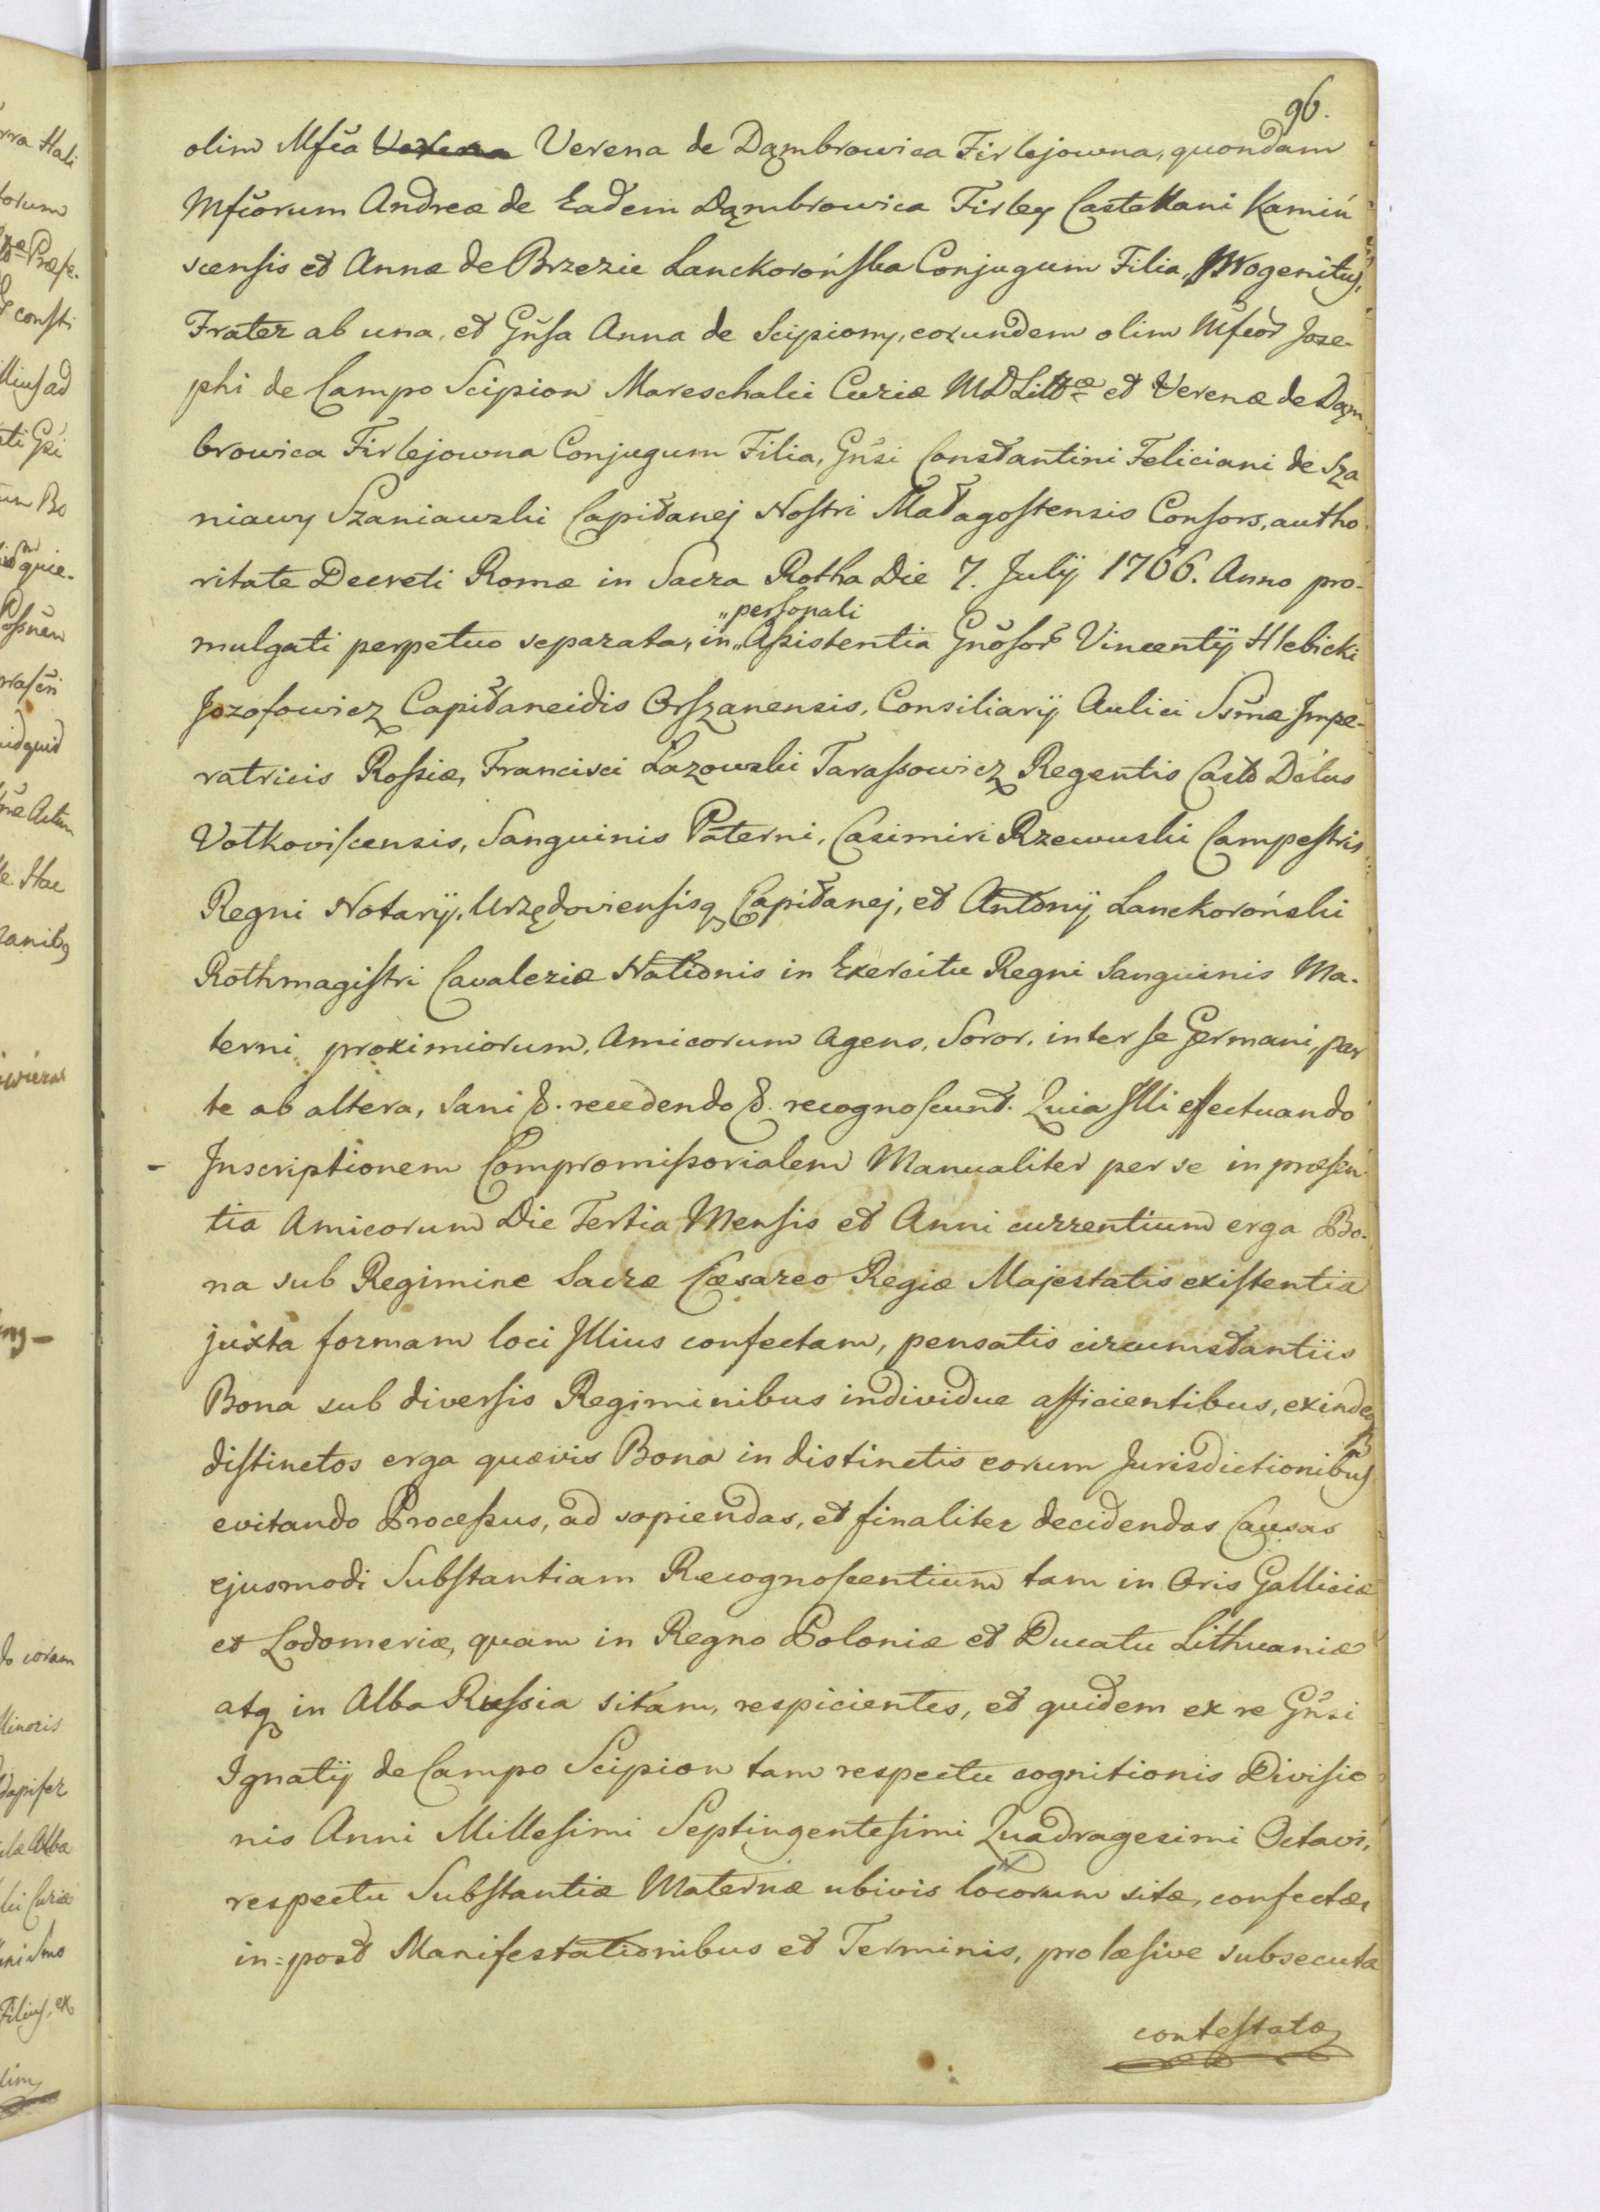 96.
olim Mfča Verena Verena de Dąmbrowica Firlejowna, quondam
Mfčorum Andreæ de Eadem Dąmbrowica Firley Castellani Kamiń
scensis et Annæ de Brzezie Lanckorońska Conjugum Filia, progenitus,
Frater ab una, et Gňsa Anna de Scipiony, eorundem olim Mfčor Jose-
phi de Campo Scipion Mareschalci Curiæ MDLittcæ et Verenæ de Dąm
browica Firlejowna Conjugum Filia, Gňsi Constantini Feliciani de Sza
niawy Szaniawski Capitanej Nostri Małagostensis Consors, autho
ritate Decreti Romæ in Sacra Rotha Die 7. Julij 1766. Anno pro-
„personali
mulgati perpetuo separata, in „Assistentia Gňosor Vincentij Hlebicki
Jozofowicz Capitaneidis Orszanensis, Consiliarij Aulici Ssmæ Impe-
ratricis Rossiæ, Francisci Łazowski Tarassowicz Regentis Cast Dčtus
Volkoviscensis, Sanguinis Paterni, Casimiri Rzewuski Campestris
Regni Notarij, Urzędoviensisq Capitanej, et Antonij Lanckoroński
Rothmagistri Cavaleriæ Nationis in Exercitu Regni Sanguinis Ma-
terni proximiorum, Amicorum Agens, Soror, inter se Germani, par
te ab altera, sani &. recedendo &. recognoscunt. Quia Illi effectuando
- Inscriptionem Compromissorialem Manualiter per se in præsen
tia Amicorum Die Tertia Mensis et Anni currentium erga Bo-
na sub Regimine Sacræ Cæsareo Regiæ Majestatis existentia
juxta formam loci Illius confectam, pensatis circumstantiis
Bona sub diversis Regiminibus individue afficientibus, exindeq
distinctos erga quævis Bona in distinctis eorum Jurisdictionibus
evitando Processus, ad sopiendas, et finaliter decidendas Causas
ejusmodi Substantiam Recognoscentium tam in Oris Galliciæ
et Lodomeriæ, quam in Regno Poloniæ et Ducatu Lithuaniæ
atq in Alba Russia sitam, respicientes, et quidem ex re Gňsi
Ignatij de Campo Scipion tam respectu cognitionis Divisio
nis Anni Millesimi Septingentesimi Quadragesimi Octavi,
respectu Substantiæ Maternæ ubivis locorum sitæ, confectæ,
in=post Manifestationibus et Terminis, prolæsive subsecuta
contestatæ